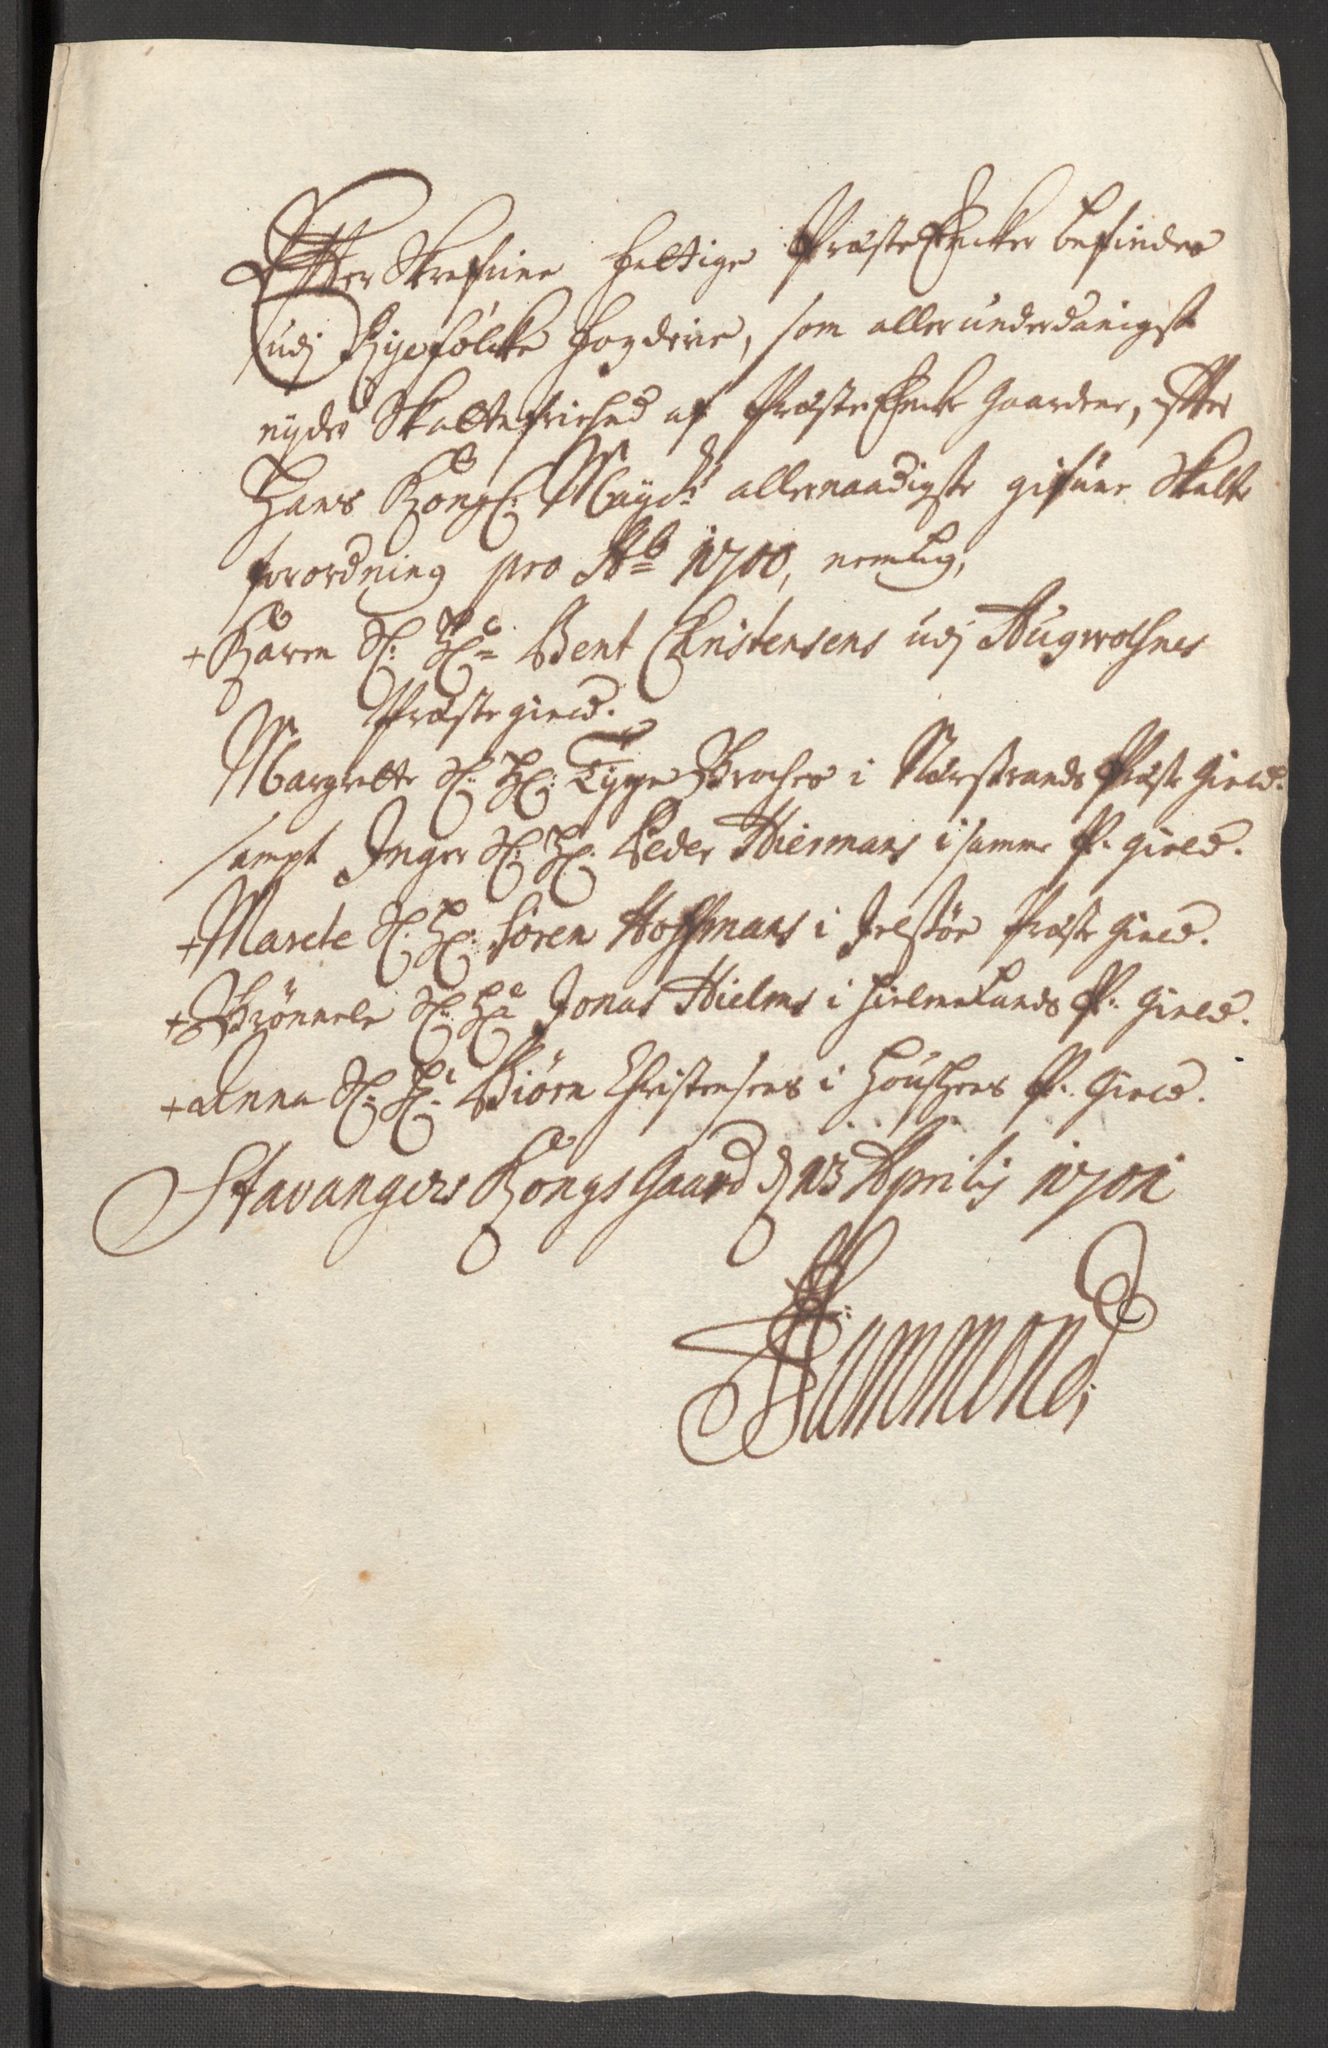 Efter Skrefne fattige PræsteEncker befindes
udj Ryefölcke fogderie, som allerunderdanigst
nyder Skattefriehed af PræsteEncke Gaarder, efter
Hans Kongl: Mayts allernaadigste gifune Skatte
forordning pro Ao 1700, nemlig,
+ Karen Sl: Hr Bent Christensens udj Augwolsnes
Præstegield.
Margrette Sl: Hr: Tyge Broches i Nærstrands Præste Gield.
sampt Inger Sl: Hr. Peder Hiermans i samme P. gield.
+ Marete Sl. Hr: Sören Hoffmans i Jelsöe Præste Gield.
+ Brönnele Sl: Hr Jonas Hielms i Hielmelands P. Gield.
+ Anna Sl: Hr. Biörn Christensens i P. Gield.
Stavangers KongsGaard d 13 Aprilis 1701
Hammond,